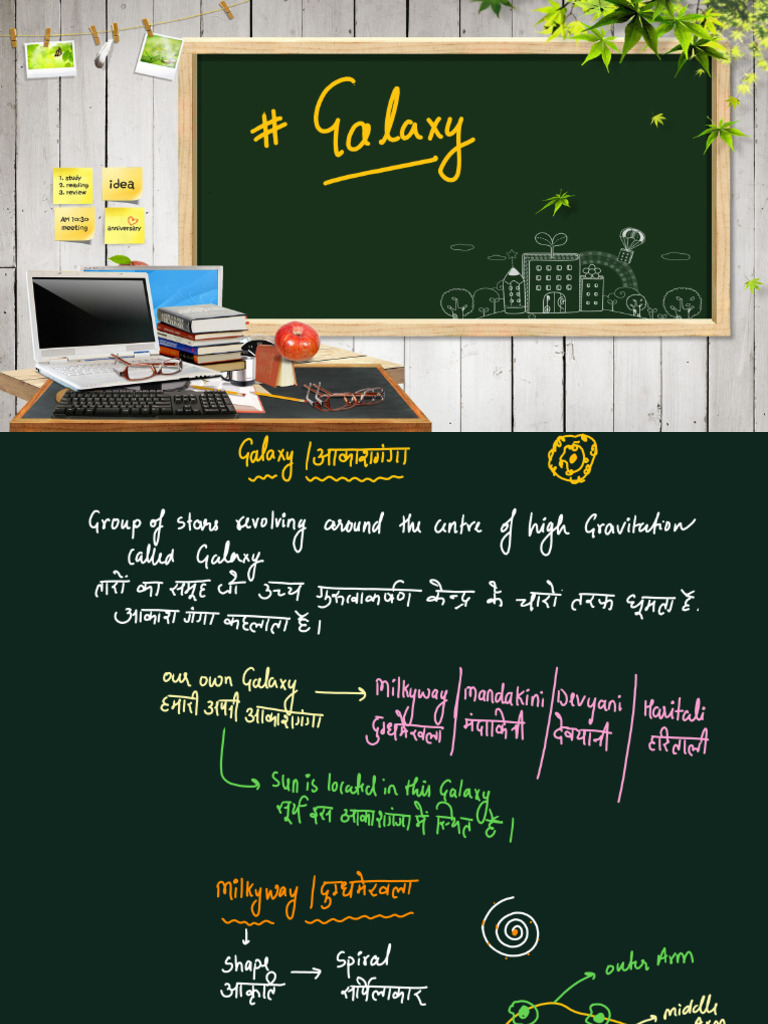 # Galaxy
1. study
2. reading
3. review
idea
AM 10:30
meeting
anniversary
Galaxy / आकाशगंगा
Group of stars revolving around the centre of high Gravitation
called Galaxy
तारों का समूह जो उच्च गुरुत्वाकर्षण केन्द्र के चारों तरफ घूमता है.
आकाश गंगा कहलाता है।
our own Galaxy → Milkyway | Mandakini | Devyani | Haritali
हमारी अपनी आकाशगंगा दुग्धमेखला | मंदाकिनी | देवयानी | हरिताली
Sun is located in this Galaxy
सूर्य इस आकाशगंगा में स्थित है।
Milkyway / दुग्धमेखला
Shape → Spiral
आकृति सर्पिलाकार
outer Arm
middle
Arm